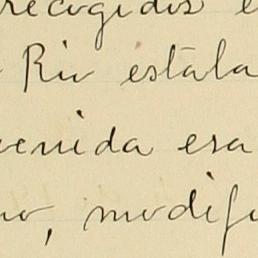 recogidos e
Rio estala
venida era
no, modifi